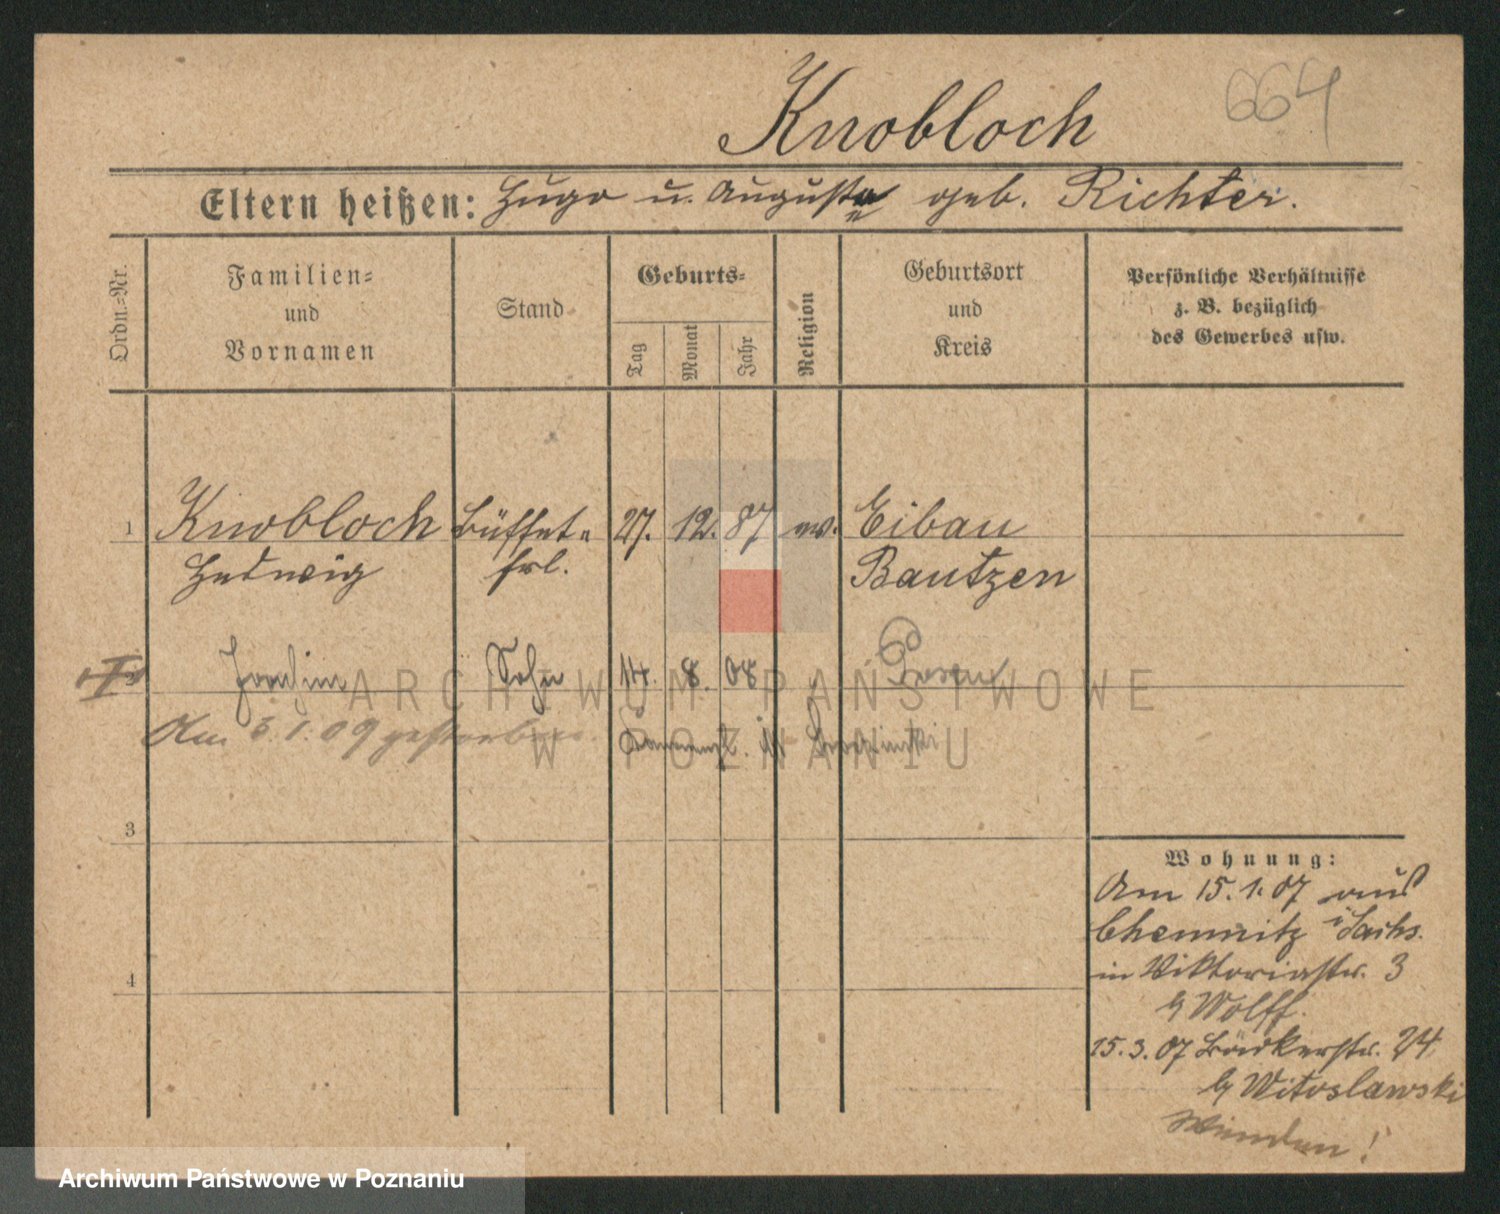 Knobloch 664
Eltern heißen: Hugo u. Auguste geb. Richter.
Ordn.-Nr.
Familien-
und
Vornamen
Stand
Geburts-
Tag
Monat
Jahr
Religion
Geburtsort
und
Kreis
Persönliche Verhältnisse
z. B. bezüglich
des Gewerbes usw.
1 Knobloch Büffet- 27. 12. 87 ev. Eibau
Hedwig frl. Bautzen
2 Joachim Sohn 14. 8. 08 Posen
Am 3.1.09 gestorben
3
4
Wohnung:
Am 15.1.07 aus
Chemnitz i Sachs.
in Viktoriastr. 3
b Wolff.
15.3.07 Bäckerstr. 24
b Witoslawski
ARCHIWUM PAŃSTWOWE
W POZNANIU
Archiwum Państwowe w Poznaniu